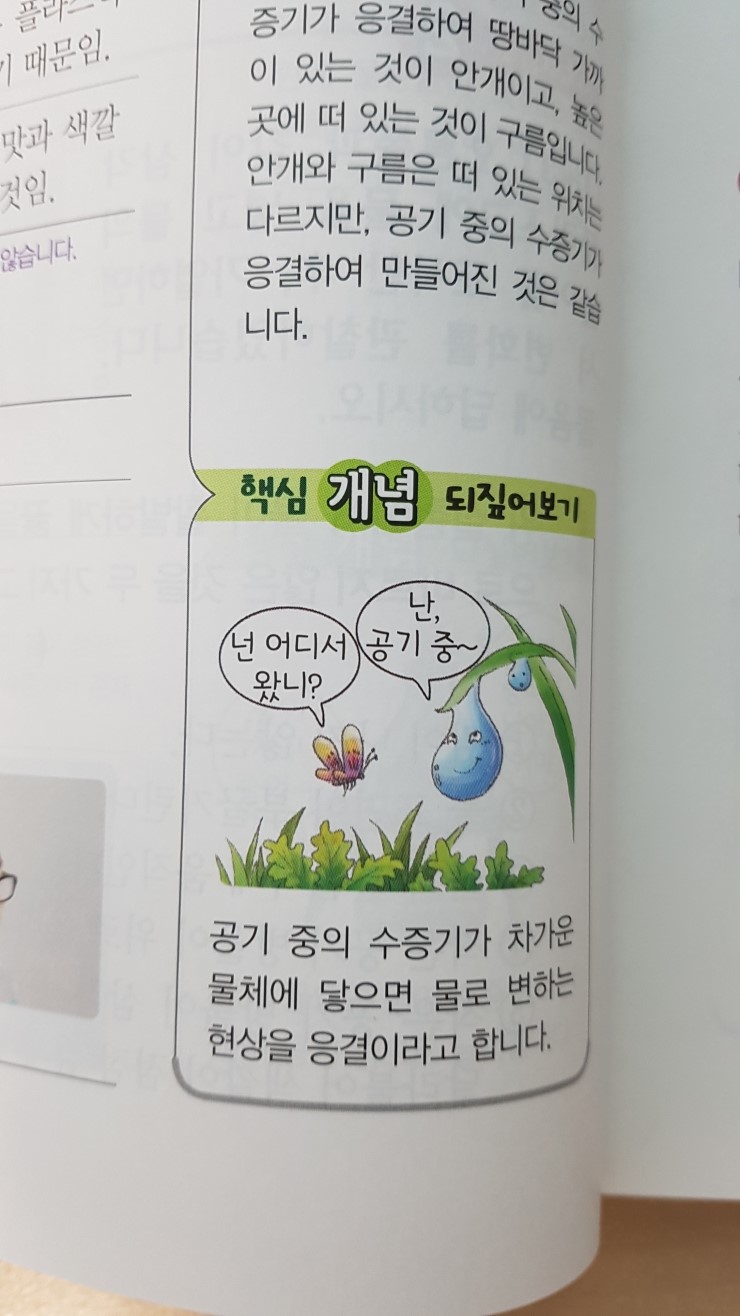 기 때문임.
맛과 색깔
것임.
않습니다.
중의 수
증기가 응결하여 땅바닥 가까
이 있는 것이 안개이고, 높은
곳에 떠 있는 것이 구름입니다.
안개와 구름은 떠 있는 위치는
다르지만, 공기 중의 수증기가
응결하여 만들어진 것은 같습
니다.
핵심 개념 되짚어보기
넌 어디서
왔니?
난,
공기 중~
공기 중의 수증기가 차가운
물체에 닿으면 물로 변하는
현상을 응결이라고 합니다.